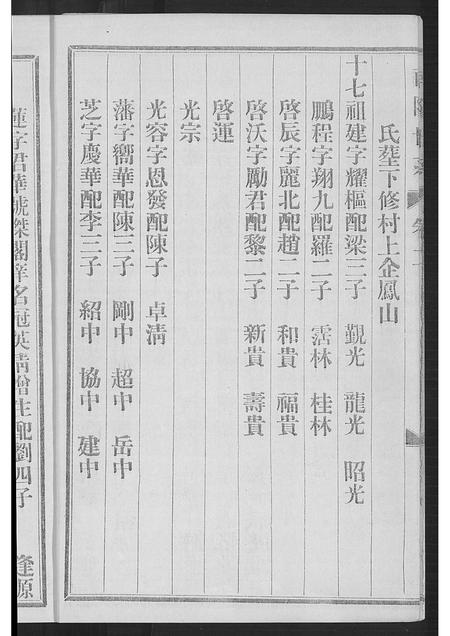 氏塟下修村上企鳳山
十七祖建字耀樞配梁三子 觐光 龍光 昭光
鵬程字翔九配羅二子 霑林 桂林
啓辰字麗北配趙二子 和貴 福貴
啓沃字勵君配黎二子 新貴 壽貴
啓運
光宗
光容字恩發配陳子 卓淸
藩字嚮華配陳三子 剛中 超中 岳中
芝字慶華配李三子 紹中 協中 建中
蓮字君華號傑閣庠名冠英淸增生配劉四子 逢源